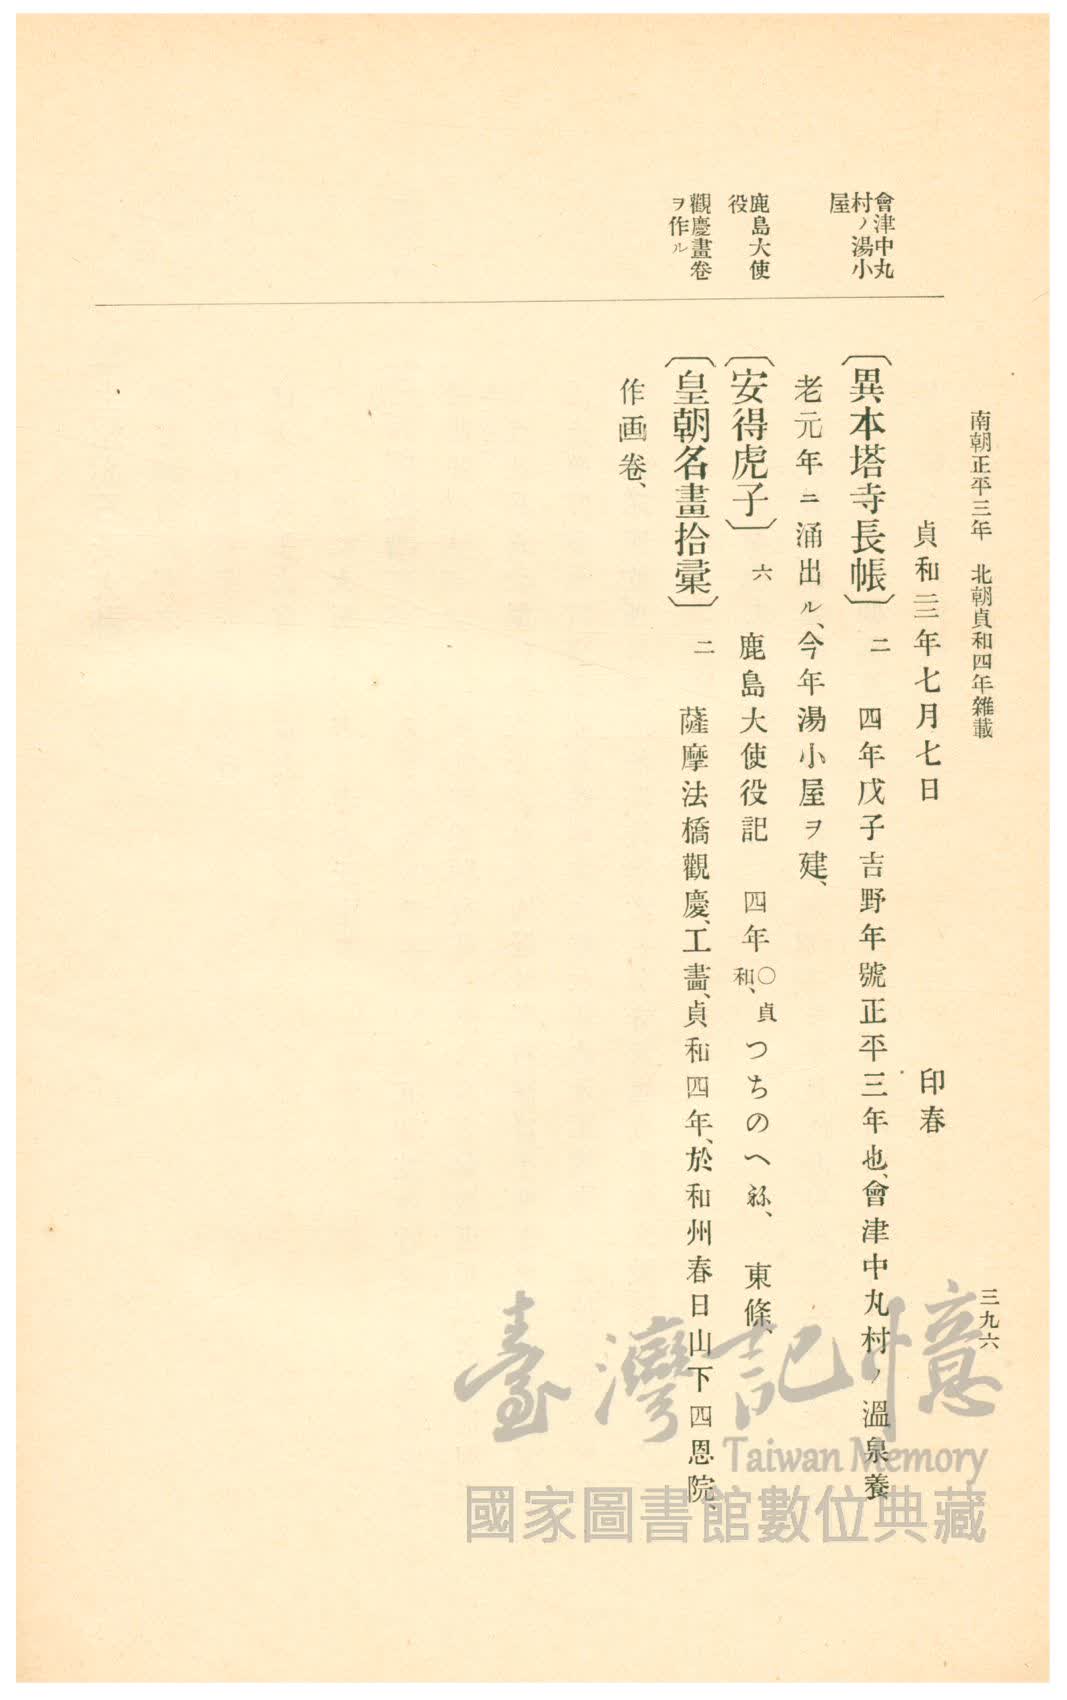 南朝正平三年 北朝貞和四年雜載
三九六
貞和三年七月七日 印春
會津中丸
村ノ湯小
屋
〔異本塔寺長帳〕二 四年戊子吉野年號正平三年也、會津中丸村ノ溫泉養
老元年ニ涌出ル、今年湯小屋ヲ建、
鹿島大使
役
〔安得虎子〕六 鹿島大使役記 四年〇貞和、つちのへね、 東條、
觀慶畫卷
ヲ作ル
〔皇朝名畫拾彙〕二 薩摩法橋觀慶、工畵、貞和四年、於和州春日山下四恩院、
作画卷、
臺灣記憶
Taiwan Memory
國家圖書館數位典藏